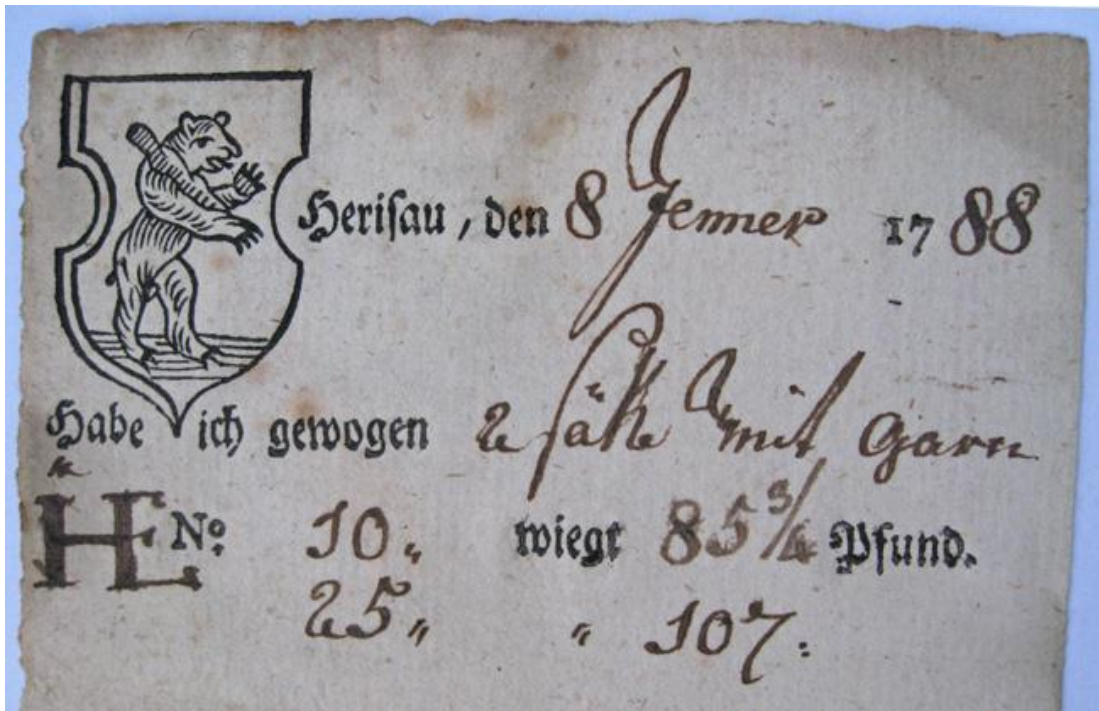 Herisau, den 8 Jenner 1788
Habe ich gewogen 2 säke mit Garn
"
HE No: 10 " wiegt 85 3/4 Pfund.
25 " " 107 :